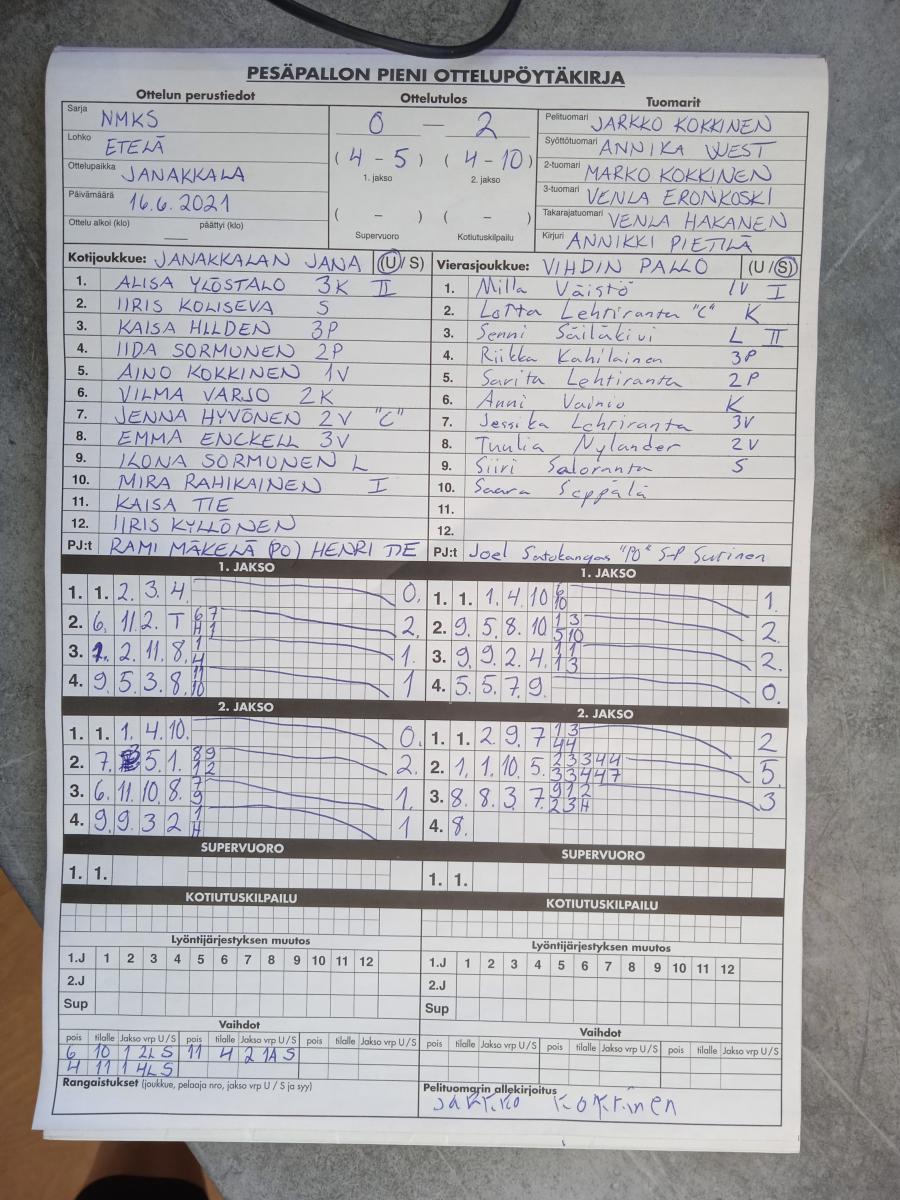 PESÄPALLON PIENI OTTELUPÖYTÄKIRJA
Ottelun perustiedot
Sarja NMKS
Lohko ETELÄ
Ottelupaikka JANAKKALA
Päivämäärä 16.6.2021
Ottelu alkoi (klo) — päättyi (klo)
Ottelutulos
0 — 2
( 4 - 5 ) ( 4 - 10 )
1. jakso 2. jakso
( - ) ( - )
Supervuoro Kotiutuskilpailu
Tuomarit
Pelituomari JARKKO KOKKINEN
Syöttötuomari ANNIKA WEST
2-tuomari MARKO KOKKINEN
3-tuomari VENLA ERONKOSKI
Takarajatuomari VENLA HAKANEN
Kirjuri ANNIKKI PIETILÄ
Kotijoukkue: JANAKKALAN JANA (U / S)
1. ALISA YLÖSTALO 3K II
2. IIRIS KOLISEVA S
3. KAISA HILDEN 3P
4. IIDA SORMUNEN 2P
5. AINO KOKKINEN 1V
6. VILMA VARJO 2K
7. JENNA HYVÖNEN 2V "C"
8. EMMA ENCKELL 3V
9. ILONA SORMUNEN L
10. MIRA RAHIKAINEN I
11. KAISA TIE
12. IIRIS KYLLÖNEN
PJ:t RAMI MÄKELÄ (PO) HENRI TIE
Vierasjoukkue: VIHDIN PALLO (U / S)
1. Milla Väistö 1V I
2. Lotta Lehtiranta "C" K
3. Senni Säiläkivi L II
4. Riikka Kahilainen 3P
5. Sarita Lehtiranta 2P
6. Anni Vainio K
7. Jessika Lehtiranta 3V
8. Tuulia Nylander 2V
9. Siiri Saloranta S
10. Saara Seppälä
11.
12.
PJ:t Joel Satokangas "PO" S-P Surinen
1. JAKSO
1. 1. 2. 3. 4. 0.
2. 6. 11. 2. T 6 7 H 1 2.
3. 1. 2. 11. 8. 1 4 1.
4. 9. 5. 3. 8. 11 10 1
1. JAKSO
1. 1. 1. 4. 10 6 10 1.
2. 9. 5. 8. 10 1 3 5 10 2.
3. 9. 9. 2. 4. 1 1 1 3 2.
4. 5. 5. 7. 9. 0.
2. JAKSO
1. 1. 1. 4. 10. 0.
2. 7. 5. 1. 8 9 1 2 2.
3. 6. 11. 10. 8. 7 9 1.
4. 9. 9. 3 2 1 H 1
2. JAKSO
1. 1. 2 9. 7 1 3 4 4 2
2. 1. 1. 10. 5. 2 3 3 4 4 3 3 4 4 7 5.
3. 8. 8. 3. 7. 9 1 2 2 3 H 3
4. 8.
SUPERVUORO
1. 1.
SUPERVUORO
1. 1.
KOTIUTUSKILPAILU
KOTIUTUSKILPAILU
Lyöntijärjestyksen muutos
1.J 1 2 3 4 5 6 7 8 9 10 11 12
2.J
Sup
Lyöntijärjestyksen muutos
1.J 1 2 3 4 5 6 7 8 9 10 11 12
2.J
Sup
Vaihdot
pois tilalle Jakso vrp U / S pois tilalle Jakso vrp U / S pois tilalle Jakso vrp U / S
6 10 1 2L S 11 4 2 1A S
4 11 1 4L S
Vaihdot
pois tilalle Jakso vrp U / S pois tilalle Jakso vrp U / S pois tilalle Jakso vrp U / S
Rangaistukset (joukkue, pelaaja nro, jakso vrp U / S ja syy)
Pelituomarin allekirjoitus
Jarkko Kokkinen